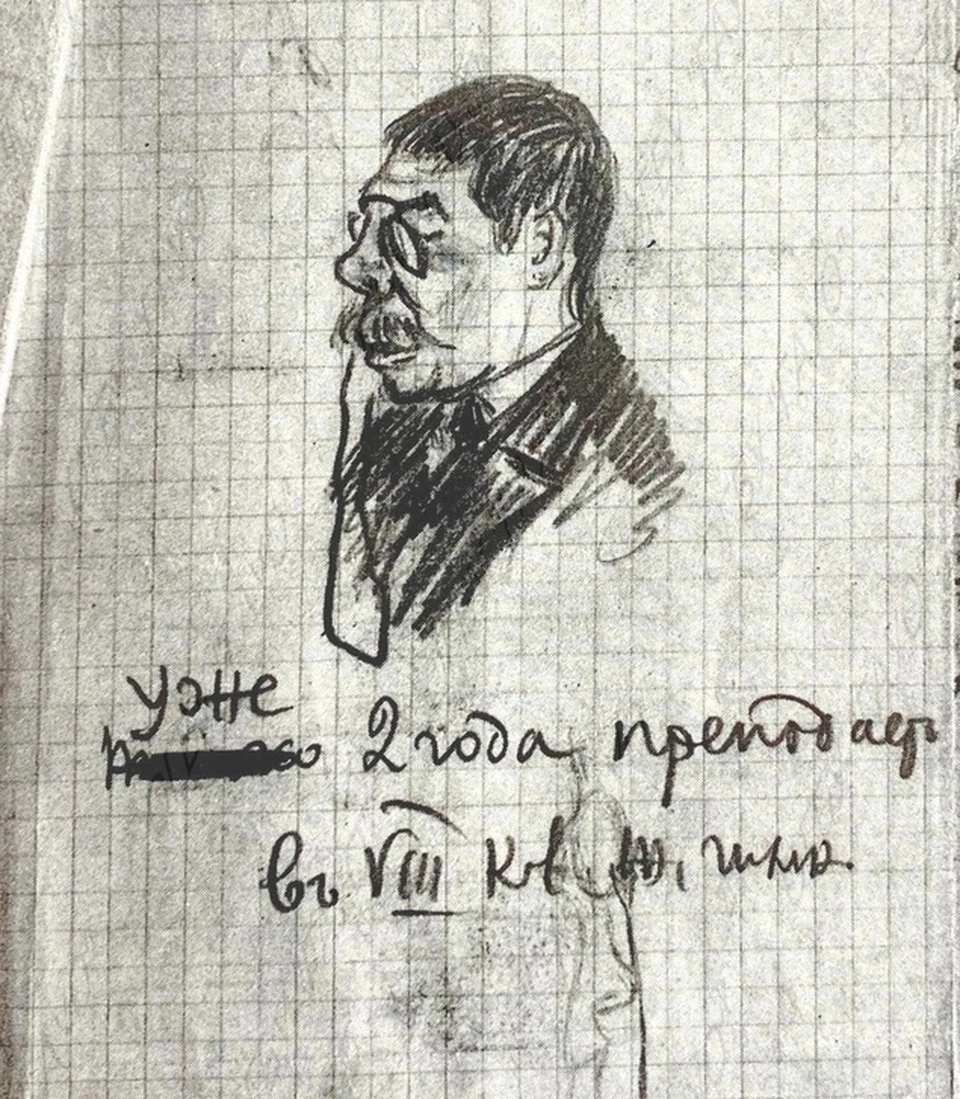 Уже
2 года преподаетъ
въ VIII кл. Ж. гимн.